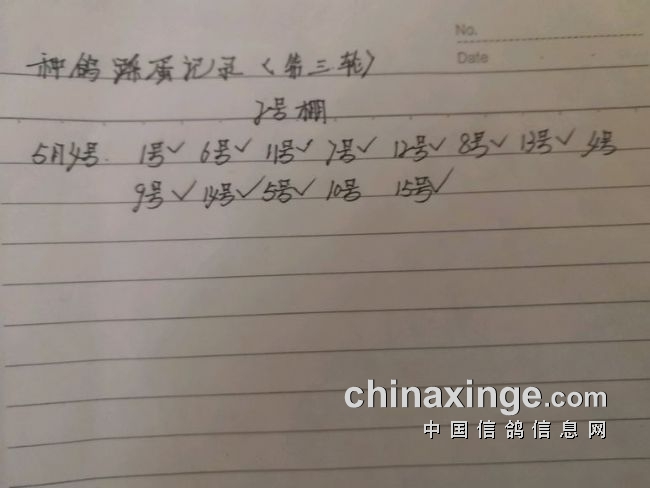 No.
Date
种鸽踩蛋记录（第三轮）
2号棚
5月4号 1号✓ 6号✓ 11号✓ 7号✓ 12号✓ 8号✓ 13号✓ 4号
9号✓ 14号✓ 5号✓ 10号 15号✓
chinaxinge.com
中国信鸽信息网